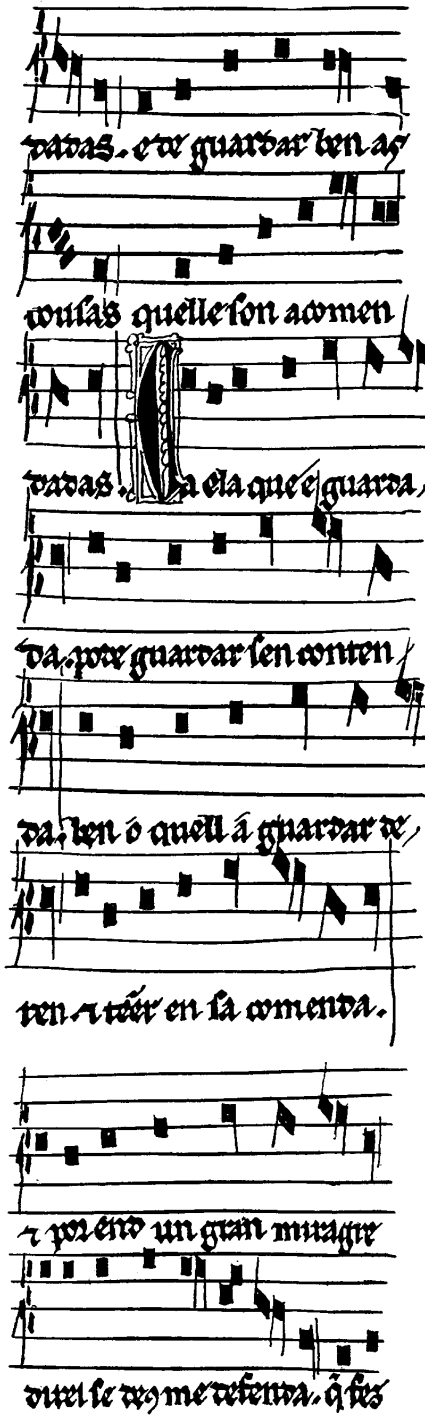 dadas. e de guardar ben as
cousas quelle son acomen
dadas. Ca ela que é guarda
da. pode guardar sen conten
da. ben o quell á guardar de
ren. ⁊ tẽer en sa comenda.
⁊ por end un gran miragre
direi se deꝯ me defenda. q̃ fez